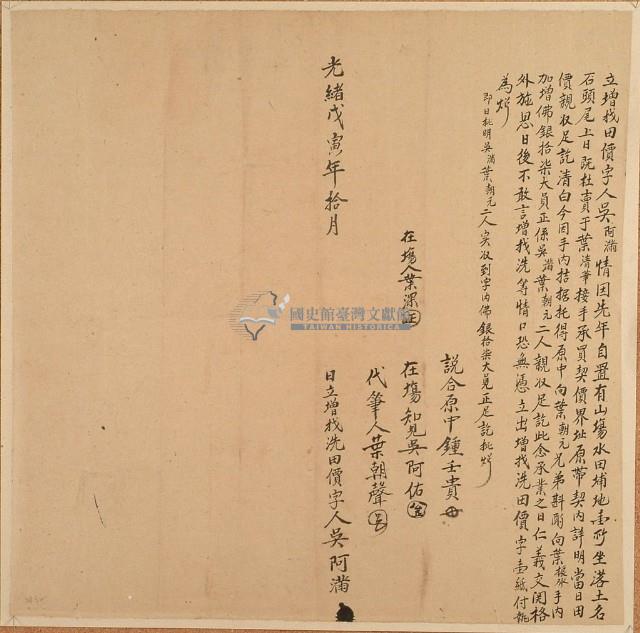 立增找田價字人吳阿滿情因先年自置有山塲水田埔地壹所坐落土名
石頭尾上日既杜賣于葉清華接手承買契價界址原帶契内詳明當日田
價親收足訖清白今因手内拮据托得原中向葉朝元兄弟斟酌向葉手内
加增佛銀拾柒大員正係吳滿葉朝元二人親收足訖此念承業之日仁義交関格
外施恩日後不敢言增找洗等情口恐無憑立出增找洗田價字壹紙付執
為炤
即日批明吳滿葉朝元二人实收到字内佛銀拾柒大員正足訖批炤
説合原中鍾壬貴
在塲知見吳阿佑
在塲人葉深
代筆人葉朝聲
光緒戊寅年拾月
日立增找洗田價字人吳阿滿
國史館臺灣文獻館
TAIWAN HISTORICA